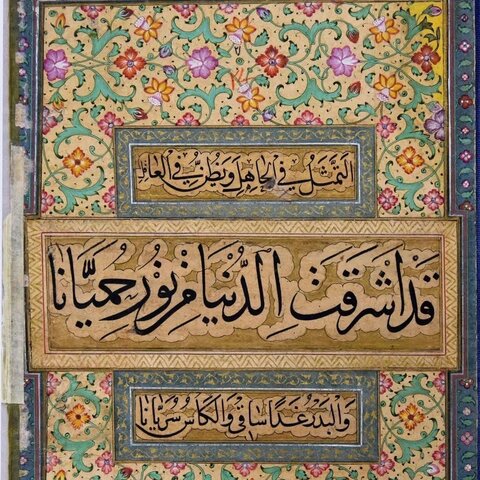 التمثل في الجاهل في العاقل
قَد اشرَقَت الدُنيَا مِن نُور حُمَيَّانَا
وَالبَدر غَدَا سَاقي وَالكَاسُ ثُرَيَّانَا